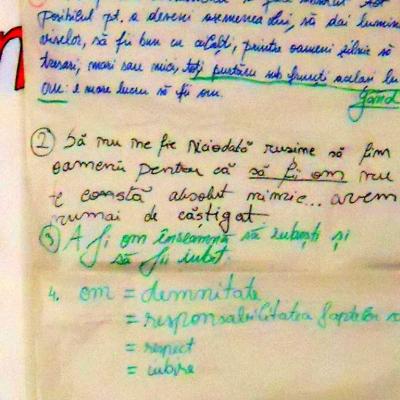 posibilul pt. a deveni asemenea lui, să dai lumina
viselor, să fii bun cu ceilalți, printre oameni zilnic să
tresari, mari sau mici, toți purtăm sub frunți același lu
om: e mare lucru să fii om.
Gând
2 Să nu ne fie niciodată rușine să fim
oameni pentru că să fii om nu
te costă absolut nimic... avem
numai de câștigat.
3 A fi om înseamnă să iubești și
să fii iubit.
4. om = demnitate
= responsabilitatea faptelor
= respect
= iubire